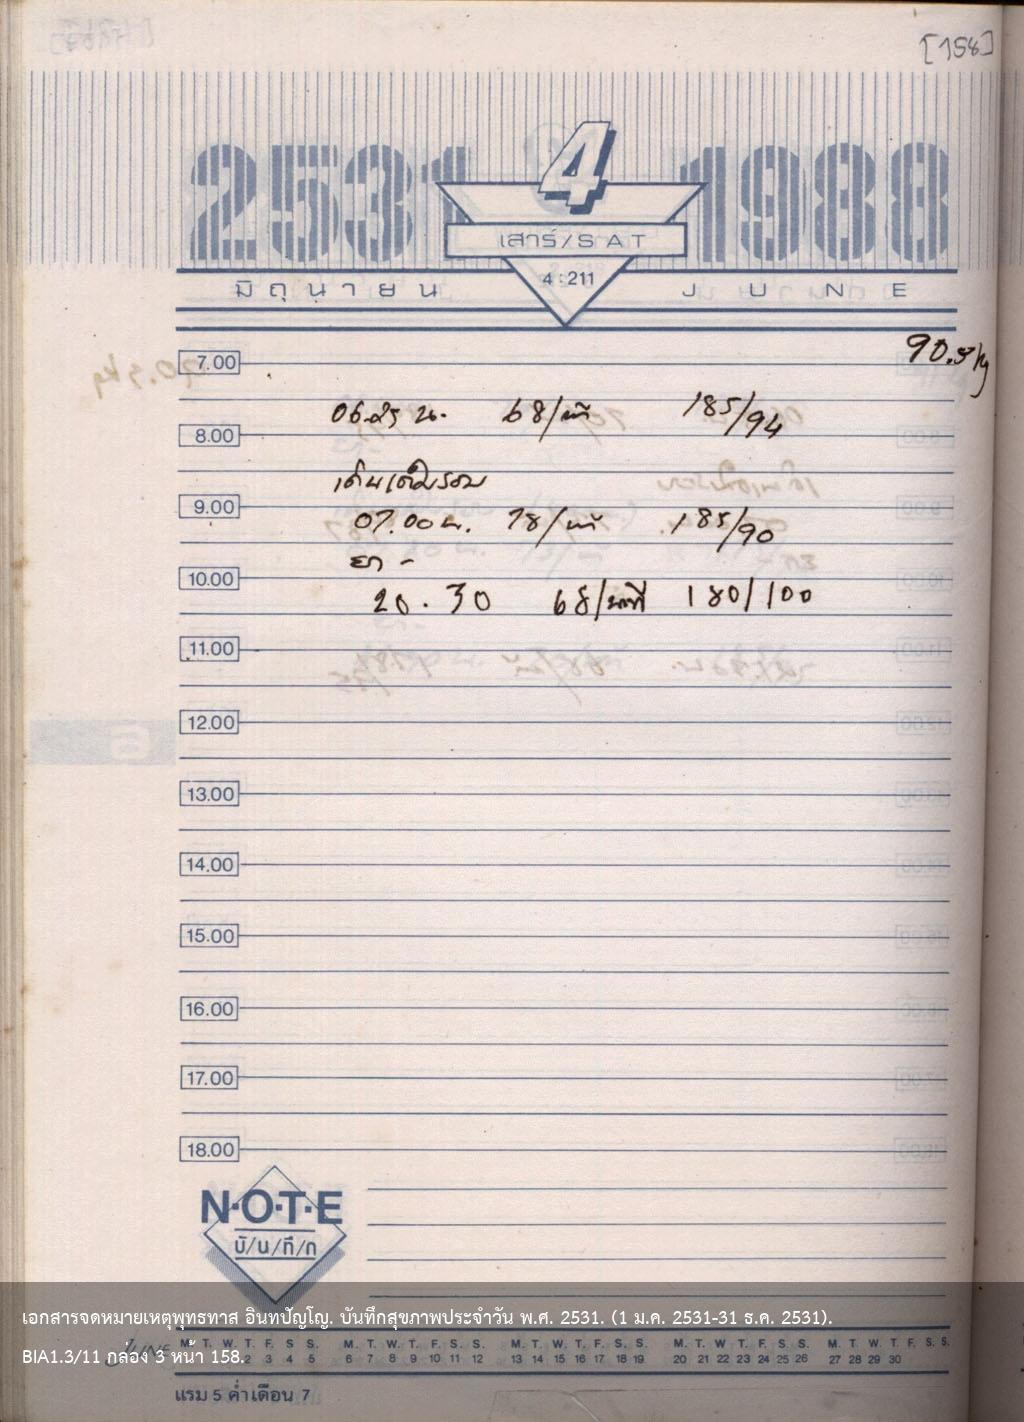 [158]
2531 4 1988
เสาร์/SAT
4:211
มิถุนายน JUNE
90.5 kg
7.00
06.25 น. 68/นาที 185/94
8.00
เดินเต็มรอบ
9.00
07.00 น. 78/นาที 185/90
ยา -
10.00
20.30 68/นาที 180/100
11.00
12.00
13.00
14.00
15.00
16.00
17.00
18.00
N·O·T·E
บั/น/ทึ/ก
เอกสารจดหมายเหตุพุทธทาส อินทปัญโญ. บันทึกสุขภาพประจำวัน พ.ศ. 2531. (1 ม.ค. 2531-31 ธ.ค. 2531).
JUNE M. T. W. T. F. S. S. M. T. W. T. F. S. S. M. T. W. T. F. S. S. M. T. W. T. F. S. S. M. T. W. T. F. S. S.
BIA1.3/11 กล่อง 3 หน้า 158.
2 3 4 5 6 7 8 9 10 11 12 13 14 15 16 17 18 19 20 21 22 23 24 25 26 27 28 29 30
แรม 5 ค่ำเดือน 7